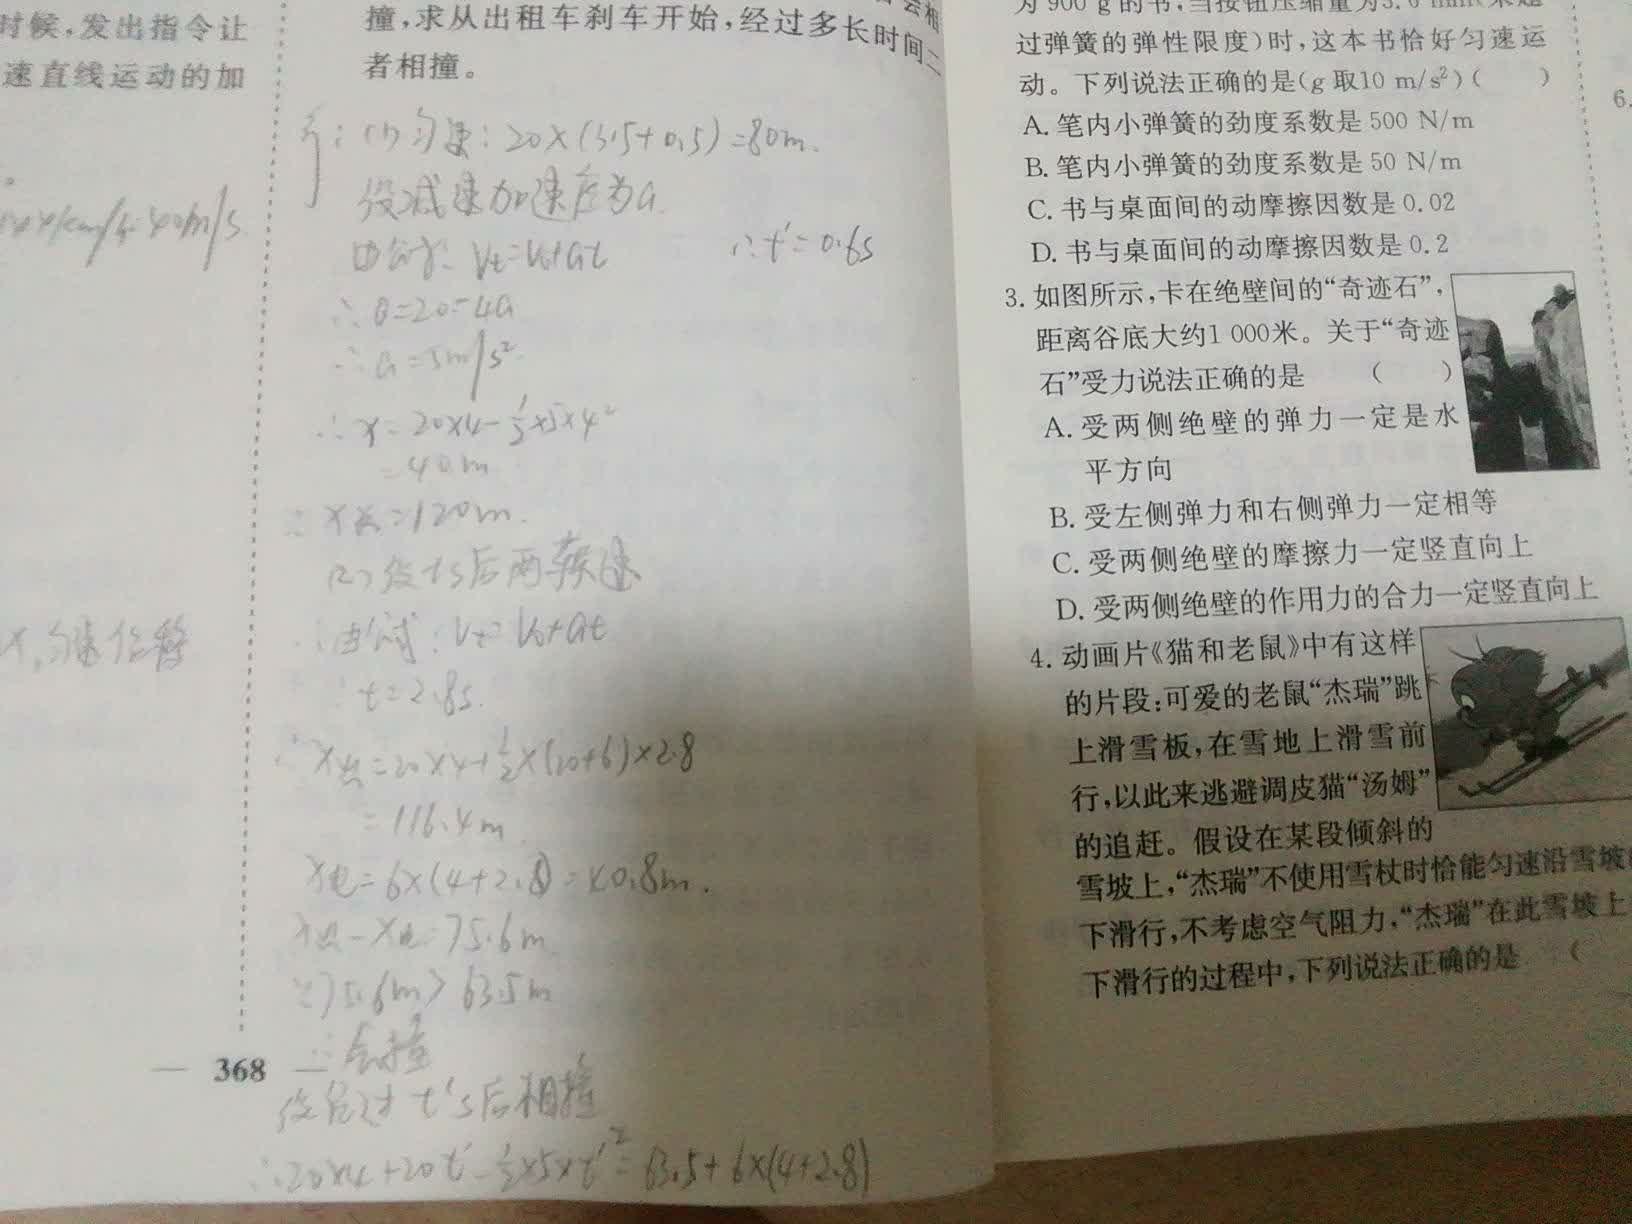 时候,发出指令让
速直线运动的加
撞,求从出租车刹车开始,经过多长时间二
者相撞。
(1)匀速:20×(3.5+0.5)=80m.
设减速加速度为a.
由公式:Vt=V0+at ∴t'=0.6s
∴0=20-4a
∴a=5m/s².
∴x=20×4-½×5×4²
=40m
∴x总=120m.
(2)设ts后两车共速
∴由公式:Vt=V0+at
∴t=2.8s.
∴x出=20×4+½×(20+6)×2.8
=116.4m
x电=6×(4+2.8)=40.8m.
x出-x电=75.6m
∵75.6m>63.5m
∴会撞
设经过t's后相撞
∴20×4+20t'-½×5×t'²=63.5+6×(4+2.8)
x,匀速位移
368
过弹簧的弹性限度)时,这本书恰好匀速运
动。下列说法正确的是(g取10 m/s²)( )
A.笔内小弹簧的劲度系数是500 N/m
B.笔内小弹簧的劲度系数是50 N/m
C.书与桌面间的动摩擦因数是0.02
D.书与桌面间的动摩擦因数是0.2
3.如图所示,卡在绝壁间的“奇迹石”,
距离谷底大约1 000米。关于“奇迹
石”受力说法正确的是 ( )
A.受两侧绝壁的弹力一定是水
平方向
B.受左侧弹力和右侧弹力一定相等
C.受两侧绝壁的摩擦力一定竖直向上
D.受两侧绝壁的作用力的合力一定竖直向上
4.动画片《猫和老鼠》中有这样
的片段:可爱的老鼠“杰瑞”跳
上滑雪板,在雪地上滑雪前
行,以此来逃避调皮猫“汤姆”
的追赶。假设在某段倾斜的
雪坡上,“杰瑞”不使用雪杖时恰能匀速沿雪坡
下滑行,不考虑空气阻力,“杰瑞”在此雪坡上
下滑行的过程中,下列说法正确的是 (
6.